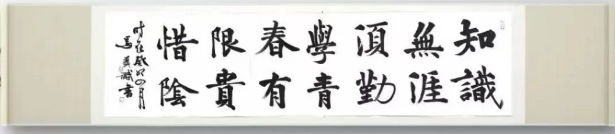 知識
無涯
湏勤
學青
春有
限貴
惜陰
時在癸卯四月
馬書